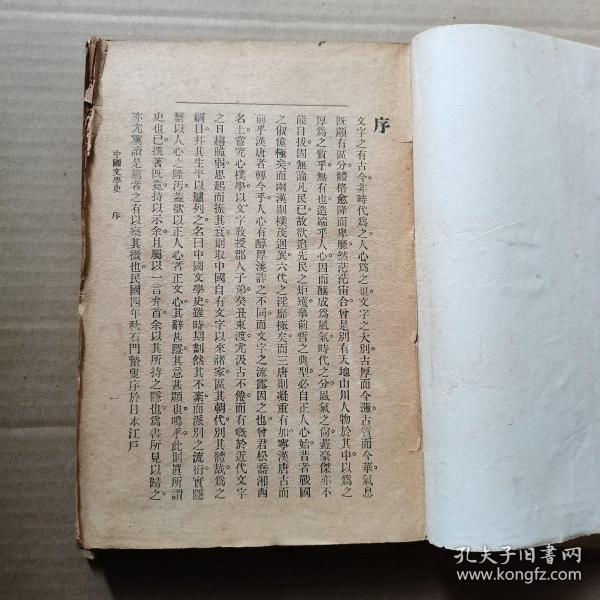 序
文字之有古今非時代爲之人心爲之也文字之大別古厚而今薄古質而今華氣息
既顯有區分體格愈降而卑靡然茫茫宙合曾是別有天地山川人物於其中以爲之
厚爲之質乎無有也造端乎人心因而釀成爲風氣時代之分風氣之尙蓋豪傑亦不
能自拔固無論凡民已故欲追先民之矩矱摹前哲之典型必自正人心始昔者戰國
之俶儻極矣而兩漢則樸茂迥異六代之淫靡極矣而三唐則凝重有加寧漢唐古而
前乎漢唐者轉今乎人心有醇厚澆詐之不同而文字之流露因之也曾君松喬湘西
名士嘗究心樸學以文字教授郡人子弟癸丑東渡尤汲古不倦而有慨於近代文字
之日趨脆弱思起而振其衰則取中國自有文字以來諸家區其朝代別其體裁爲之
綱目幷其生平以臚列之名曰中國文學史雖時期劃然其不紊而派別之流衍實隱
繫以人心之隆汚蓋欲以正人心者正文心其辭甚隱其意甚顯也嗚乎此則眞所謂
史也已撰著既竟持以示余且屬以一言弁首余以其所持之隱也爲書所見以歸之
亦尤冀讀是篇者之有以察其微也民國四年秋石門
叟序於日本江戶
中國文學史 序
一
孔夫子旧书网
www.kongfz.com